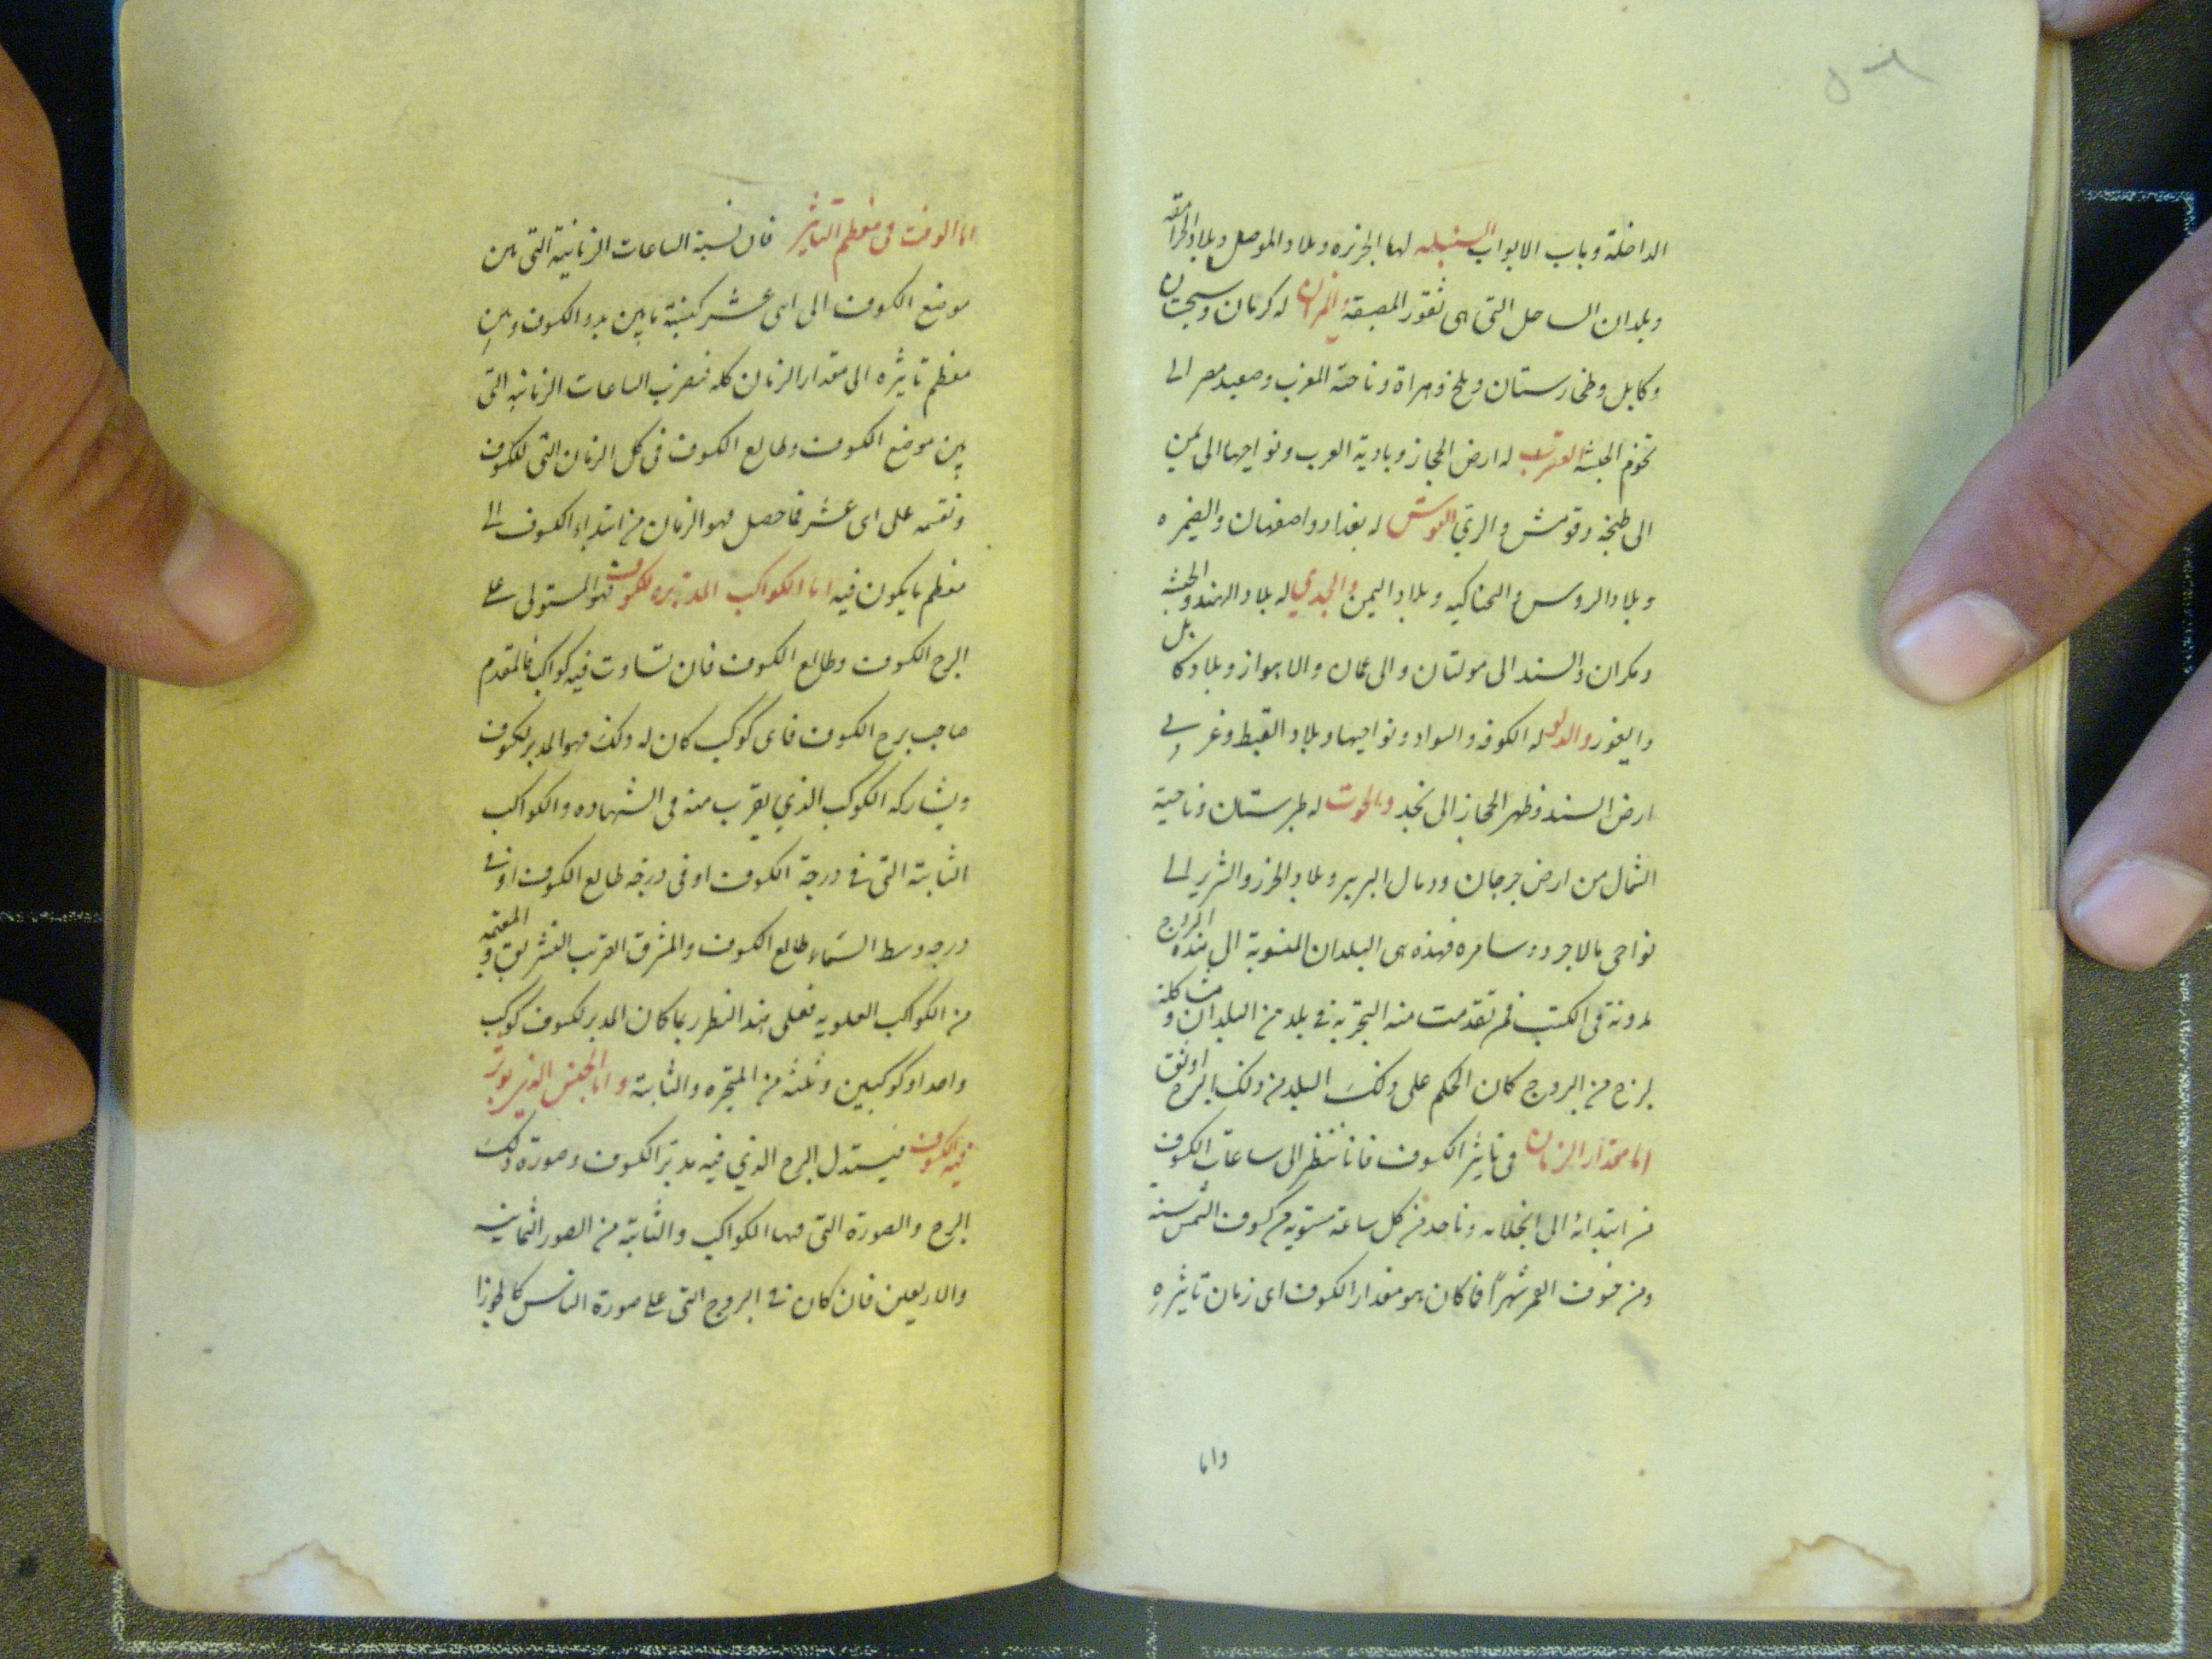 الداخلة وباب الابواب السنبله لها الجزيره وبلاد الموصل وبلاد الجرامقه
وبلدان الساحل التى هى ثغور المصيصة الميزان له كرمان وسجستان
وكابل وطخارستان وبلخ وهراة وناحية المغرب وصعيد مصر الى
تخوم الحبشه العقرب له ارض الحجاز وبادية العرب ونواحيها الى اليمن
الى طنجة وقومش والرى القوس له بغداد واصفهان والصيمره
وبلاد الروس وبلاد اليمن والجدي له بلاد الهند والحبشه
ومكران والسند الى مولتان والى عمان والاهواز وبلاد كابل
والغور والدلو له الكوفه والسواد ونواحيها وبلاد القبط وغربى
ارض السند وظهر الحجاز الى نجد والحوت له طبرستان وناحية
الشمال من ارض جرجان ورمال البربر وبلاد الخزر والشرير الى
نواحى فهذه هى البلدان المنسوبة الى هذه البروج
مدونة فى الكتب فمن تقدمت منه التجربة فى بلد من البلدان ومشاكلة
لبرج من البروج كان الحكم على ذلك البلد من ذلك البرج اوثق
اما مقدار الزمان فى تاثير الكسوف فانا ننظر الى ساعات الكسوف
من ابتدائه الى انجلائه وناخذ من كل ساعة مستويه من كسوف الشمس سنة
ومن خسوف القمر شهراً فما كان هو مقدار الكسوف اى زمان تاثيره
واما
اما الوقت فى معظم التاثير فان نسبة الساعات الزمانية التى بين
موضع الكسوف الى اثنى عشر كنسبة ما بين بدو الكسوف وبين
معظم تاثيره الى مقدار الزمان كله فنضرب الساعات الزمانيه التى
بين موضع الكسوف وطالع الكسوف فى كل الزمان التى للكسوف
ونقسمه على اثنى عشر فما حصل فهو الزمان من ابتداء الكسوف الى
معظم ما يكون فيه اما الكواكب المدبره للكسوف فهو المستولى على
البرج الكسوف وطالع الكسوف فان تساوت فيه كواكب فالمقدم
صاحب برج الكسوف فاى كوكب كان له ذلك فهو المدبر للكسوف
ويشاركه الكوكب الذي يقرب منه فى الشهاده والكواكب
الثابتة التى فى درجة الكسوف او فى درجة طالع الكسوف او فى
درجه وسط السماء طالع الكسوف والمشرق القريب التشريق والمقيمه
من الكواكب العلويه فعلى هذا النظر ربما كان المدبر لكسوف كوكب
واحد او كوكبين وثلثه من المتحيره والثابتة واما الجنس الذي يوثر
فيه الكسوف فيستدل البرج الذي فيه مدبر الكسوف وصورة ذلك
البرج والصورة التى فيها الكواكب والثابتة من الصور الثمانيه
والاربعين فان كان فى البروج التى على صورة الناس كالجوزا